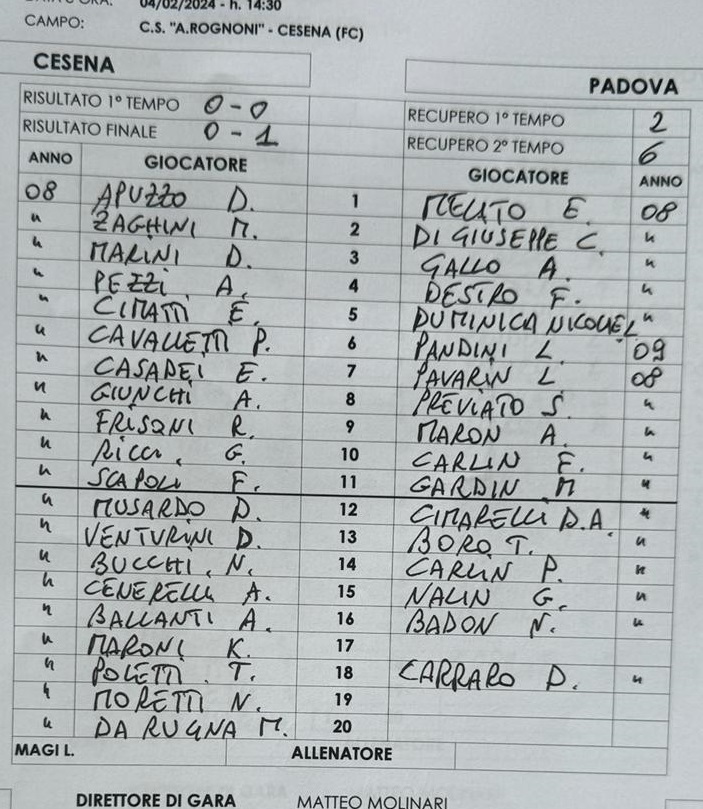 04/02/2024 - h. 14:30
CAMPO: C.S. "A.ROGNONI" - CESENA (FC)
CESENA PADOVA
RISULTATO 1° TEMPO 0-0 RECUPERO 1° TEMPO 2
RISULTATO FINALE 0-1 RECUPERO 2° TEMPO 6
ANNO GIOCATORE GIOCATORE ANNO
08 APUZZO D. 1 MELATO E. 08
" ZAGHINI M. 2 DI GIUSEPPE C. "
" MARINI D. 3 GALLO A. "
" PEZZI A. 4 DESTRO F. "
" CIMATTI E. 5 DUMINICA NICOLIEL "
" CAVALLETTI P. 6 PANDINI L. 09
" CASADEI E. 7 PAVARIN L 08
" GIUNCHI A. 8 PREVIATO S. "
" FRISONI R. 9 MARON A. "
" RICCI G. 10 CARLIN F. "
" SCAPOLI F. 11 GARDIN M "
" MUSARDO D. 12 CIMARELLI D.A. "
" VENTURINI D. 13 BORO T. "
" BUCCHI N. 14 CARLIN P. "
" CENERELLI A. 15 NALIN G. "
" BALLANTI A. 16 BADON N. "
" MARONI K. 17
" POLETTI T. 18 CARRARO D. "
" MORETTI N. 19
" DA RUGNA M. 20
MAGI L. ALLENATORE
DIRETTORE DI GARA MATTEO MOLINARI